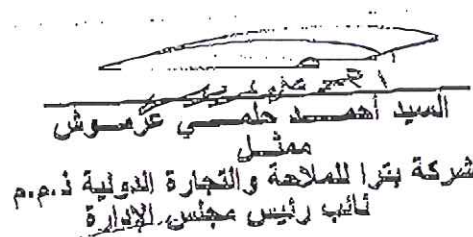 السيد أحمد حلمي عرموش
ممثل
شركة بترا للملاحة والتجارة الدولية ذ.م.م
نائب رئيس مجلس الإدارة